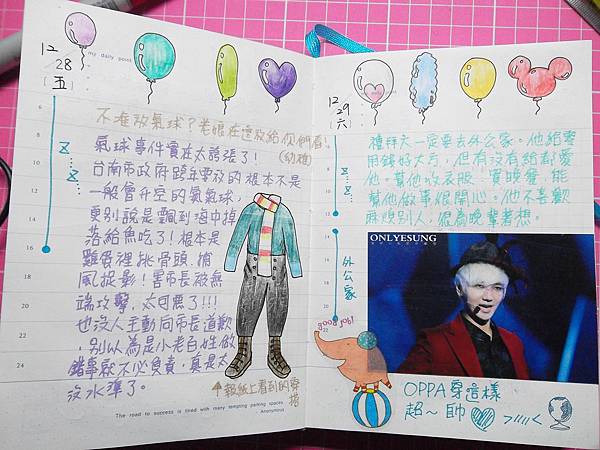 12
28
(五)
my daily point
不准放氣球？老娘在這放給你們看！
(幼稚)
氣球事件實在太誇張了！
台南市政府跨年要放的根本不是
一般會升空的氦氣球，
更別說是飄到海中掉
落給魚吃了！根本是
雞蛋裡挑骨頭，捕
風捉影！害市長被無
端攻擊，太可惡了!!!
也沒人主動向市長道歉
，別以為是小老百姓做
錯事就不必負責，真是太
沒水準了。
↑報紙上看到的穿
搭
6
8
10
12
14
16
18
20
22
24
The road to success is lined with many tempting parking spaces.
- Anonymous
12
29
(六)
禮拜六一定要去外公家。他給零
用錢好大方，但有沒有給都愛
他。幫他收衣服、買晚餐，能
幫他做事很開心。他不喜歡
麻煩別人，總為晚輩著想。
外公家
good job!
22
ONLYESUNG
OPPA 穿這樣
超～帥